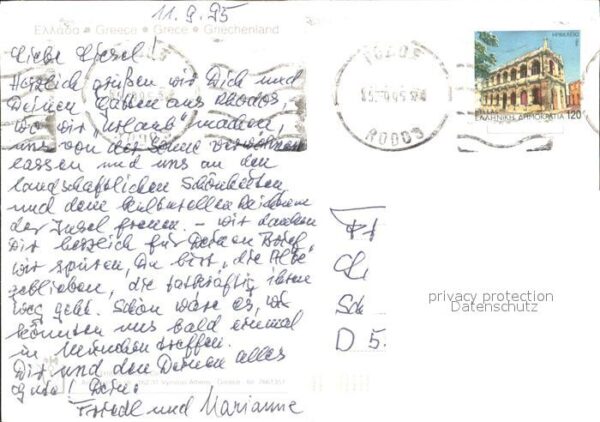 11.9.95
Ελλάδα • Greece • Grèce • Griechenland
Liebe Liesel!
Herzlich grüßen wir Dich und
Deinen Gatten aus Rhodos,
wo wir "Urlaub" machen,
uns von der Sonne verwöhnen
lassen und uns an den
landschaftlichen Schönheiten
und dem kulturellen Reichtum
der Insel freuen. – Wir danken
Dir herzlich für Deinen Brief,
wir spüren, Du bist "die Alte"
geblieben, die tatkräftig ihren
Weg geht. Schön wäre es, wir
könnten uns bald einmal
in München treffen.
Dir und den Deinen alles
Gute! Deine
Friedl und Marianne
ΗΡΑΚΛΕΙΟ
ΕΛΛΗΝΙΚΗ ΔΗΜΟΚΡΑΤΙΑ 120
RODOS
95
ΡΟΔΟΣ
Ch
Sch
D 5
privacy protection
Datenschutz
Athens - Greece - tel.